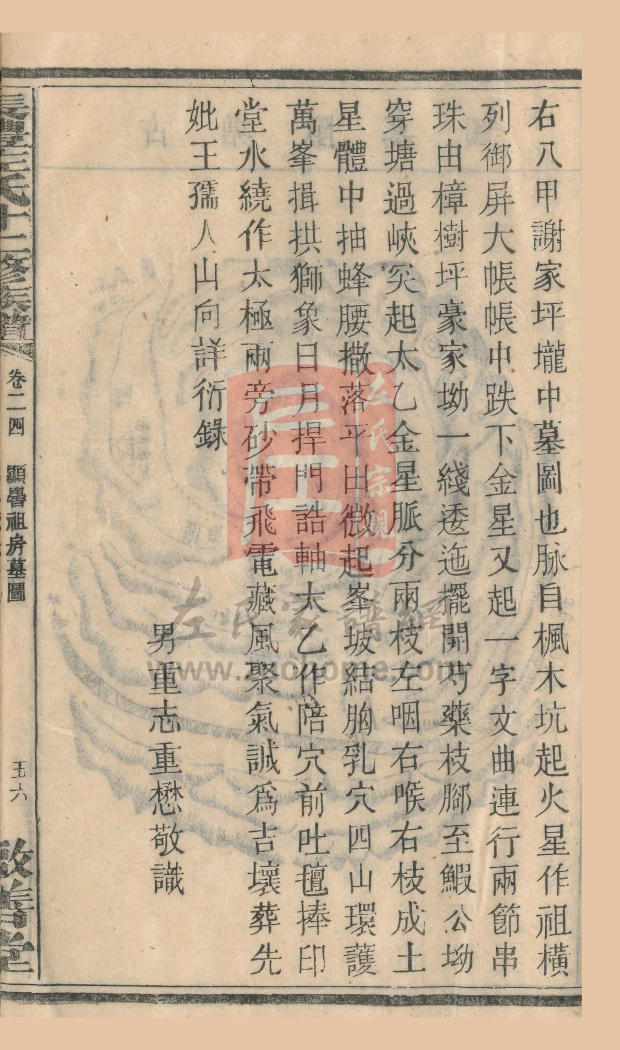 右八甲謝家坪壠中墓圖也脉自楓木坑起火星作祖橫
列御屏大帳帳中跌下金星又起一字文曲連行兩節串
珠由樟樹坪豪家坳一綫逶迤擺開芍藥枝脚至鰕公坳
穿塘過峽突起太乙金星脈分兩枝左咽右喉右枝成土
星體中抽蜂腰撒落平田微起峯坡結胸乳穴四山環護
萬峯揖拱獅象日月捍門誥軸太乙作陪穴前吐氊捧印
堂水繞作太極兩旁砂帶飛電藏風聚氣誠爲吉壤葬先
妣王孺人山向詳衍錄
男重志重懋敬識
長豐左氏十二修族譜
卷二四
顯魯祖房墓圖
五六
敦善堂
左氏宗親
左氏家譜網
www.zuohome.com